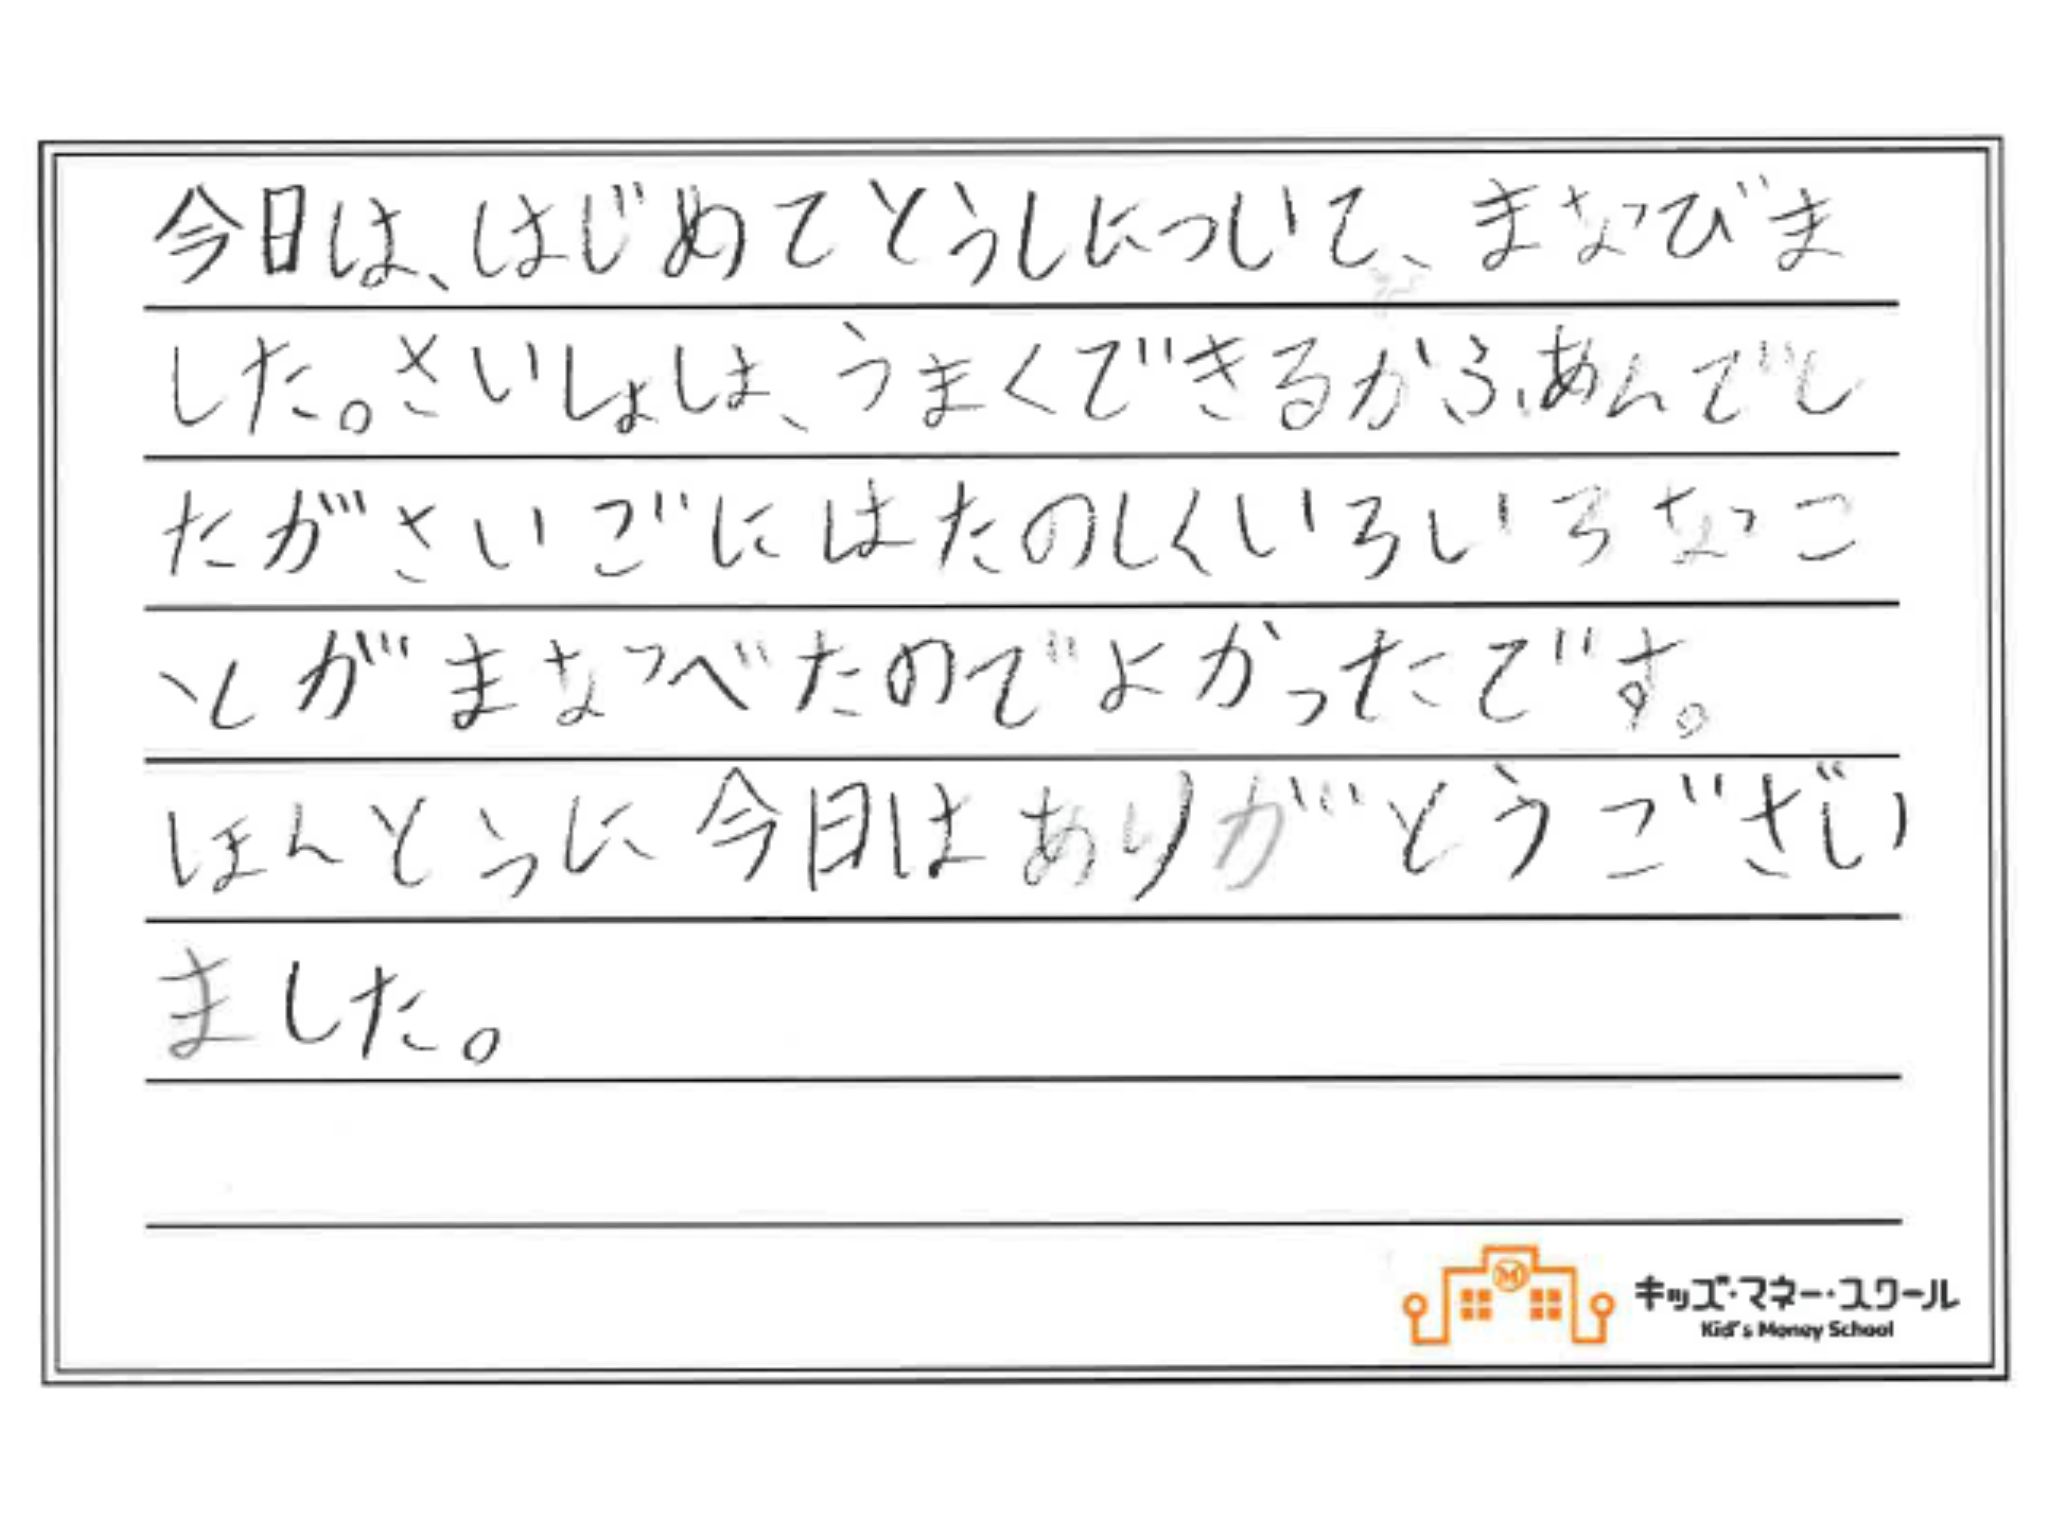 今日は、はじめてとうしについて、まなびま
した。さいしょは、うまくできるかふあんでし
たがさいごにはたのしくいろいろなこ
とがまなべたのでよかったです。
ほんとうに今日はありがとうござい
ました。
キッズ・マネー・スクール
Kid's Money School